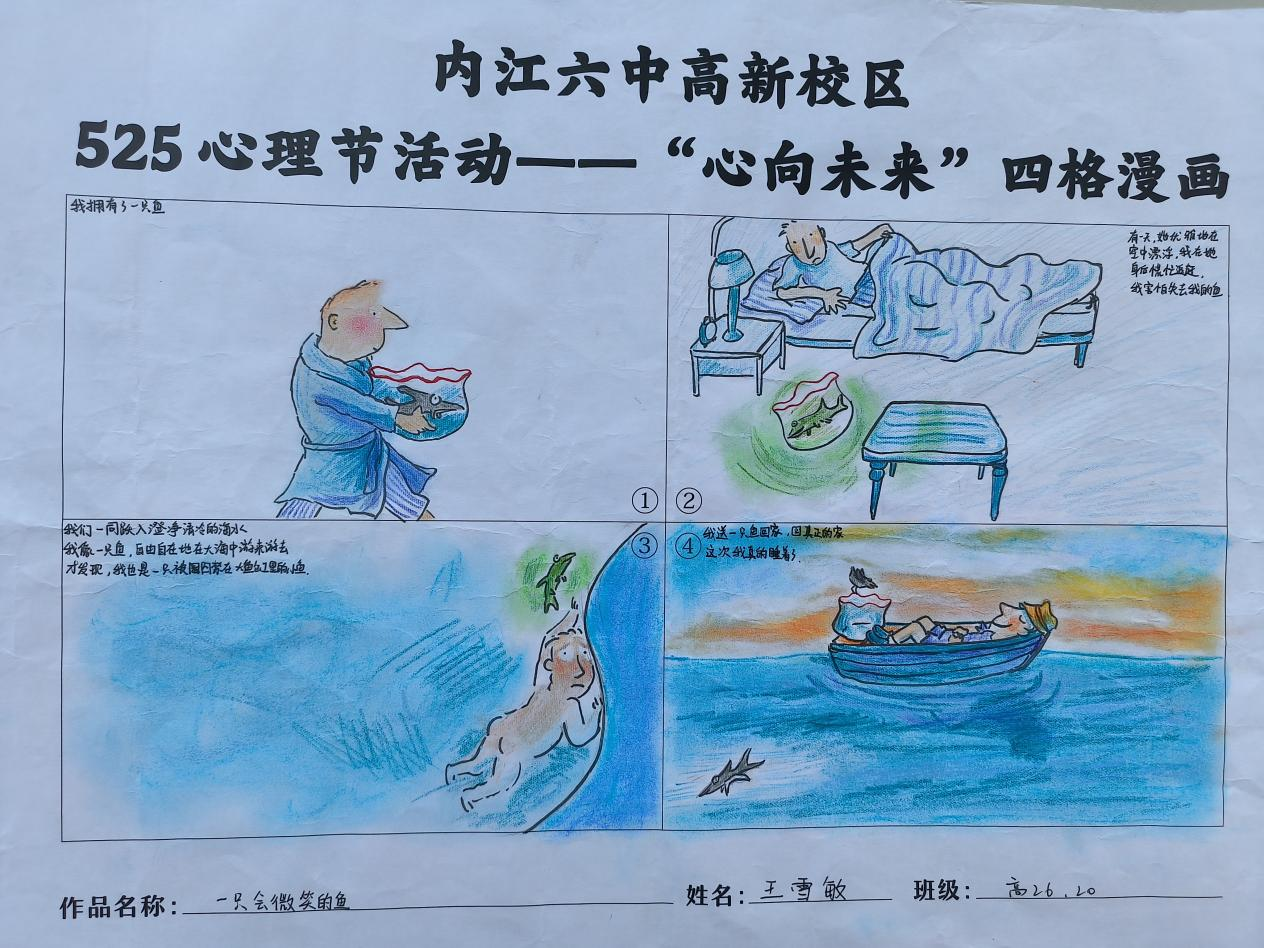 内江六中高新校区
525心理节活动——“心向未来”四格漫画
我拥有了一只鱼
①
有一天,她优雅地在
空中漂浮,我在她
身后慌忙追赶,
我害怕失去我的鱼
②
我们一同跃入澄净清冷的海水
我像一只鱼,自由自在地在大海中游来游去
才发现,我也是一只被困在大鱼缸里的小鱼.
③
④
我送一只鱼回家,回真正的家
这次我真的睡着了.
作品名称:一只会微笑的鱼
姓名:王雪敏 班级:高26.20